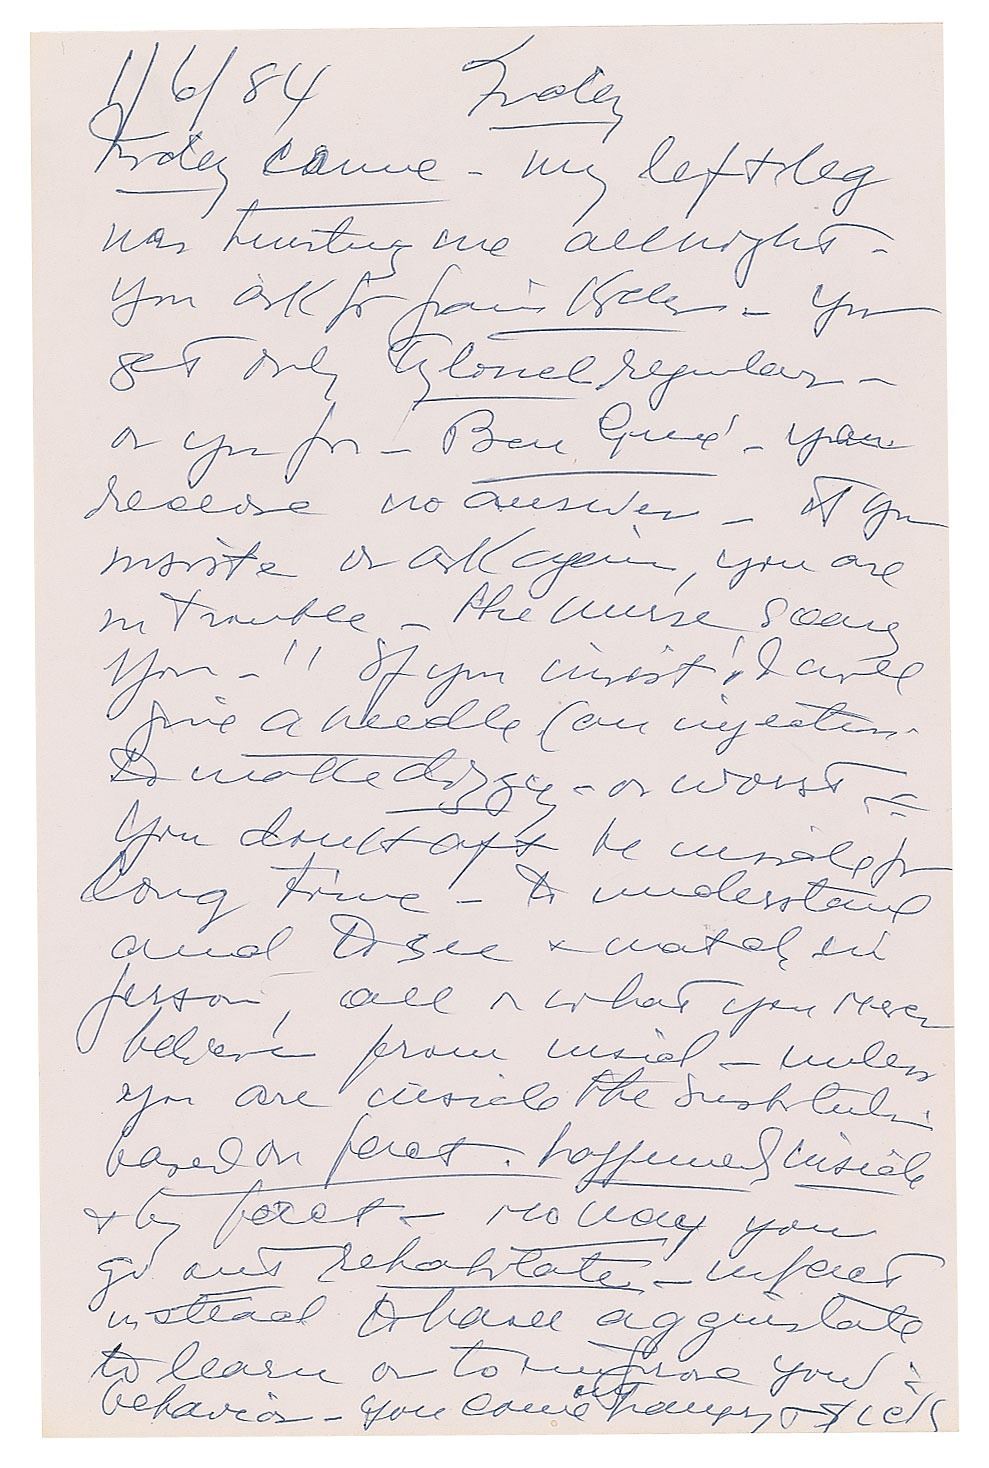 1/6/84 Friday
Friday came - my left leg
was hurting me all night -
You ask for pain - You
get only Tylonel regular -
or you for - Ben Gue' - you
receive no answer - If you
insiste or ask again, you are
in trouble - the nurse
You - " If you insist"! I will
give a needle (an injection
to make dizzy - or worst -
You don't be inside for
long time - to understand
and to see & watch, in
person, all or what you never
from insid - unless
you are inside the Institution
based on fact. happened inside
& by fact - no way you
go out rehabilitate - in fact
instead to have
to learn or to improve your
behavior - you come out hungry &